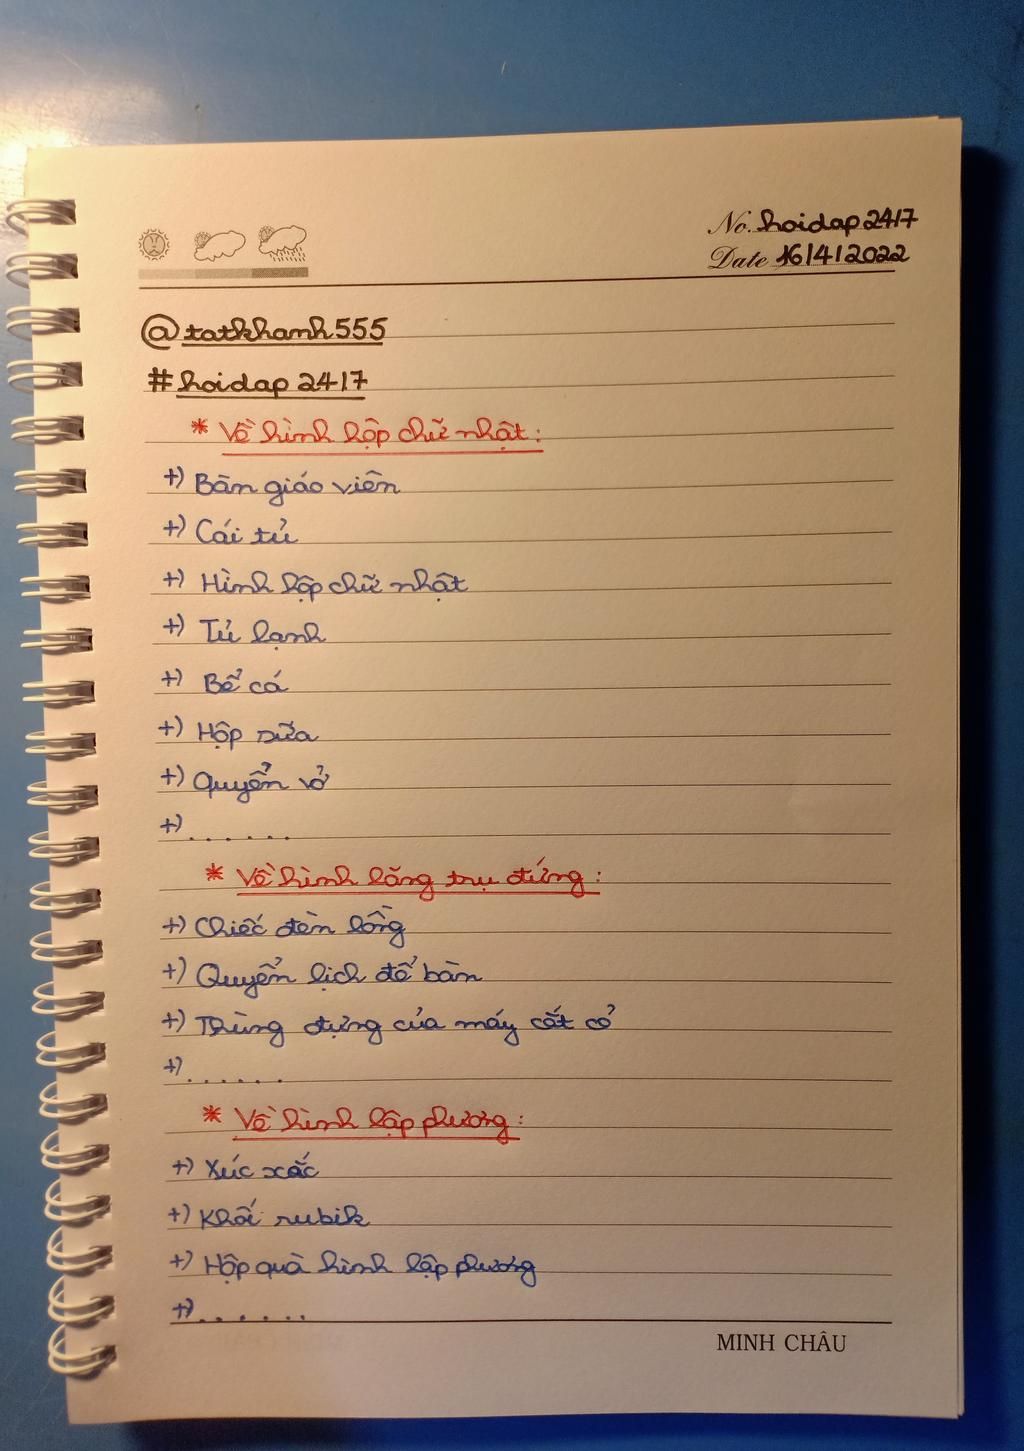 No. hoidap2417
Date 16/4/2022
@tatkhanh555
#hoidap2417
* Về hình hộp chữ nhật:
+) Bàn giáo viên
+) Cái tủ
+) Hình hộp chữ nhật
+) Tủ lạnh
+) Bể cá
+) Hộp sữa
+) Quyển vở
+) ......
* Về hình lăng trụ đứng:
+) Chiếc đèn lồng
+) Quyển lịch để bàn
+) Thùng đựng của máy cắt cỏ
+) ......
* Về hình lập phương:
+) Xúc xắc
+) Khối rubik
+) Hộp quà hình lập phương
+) ......
MINH CHÂU